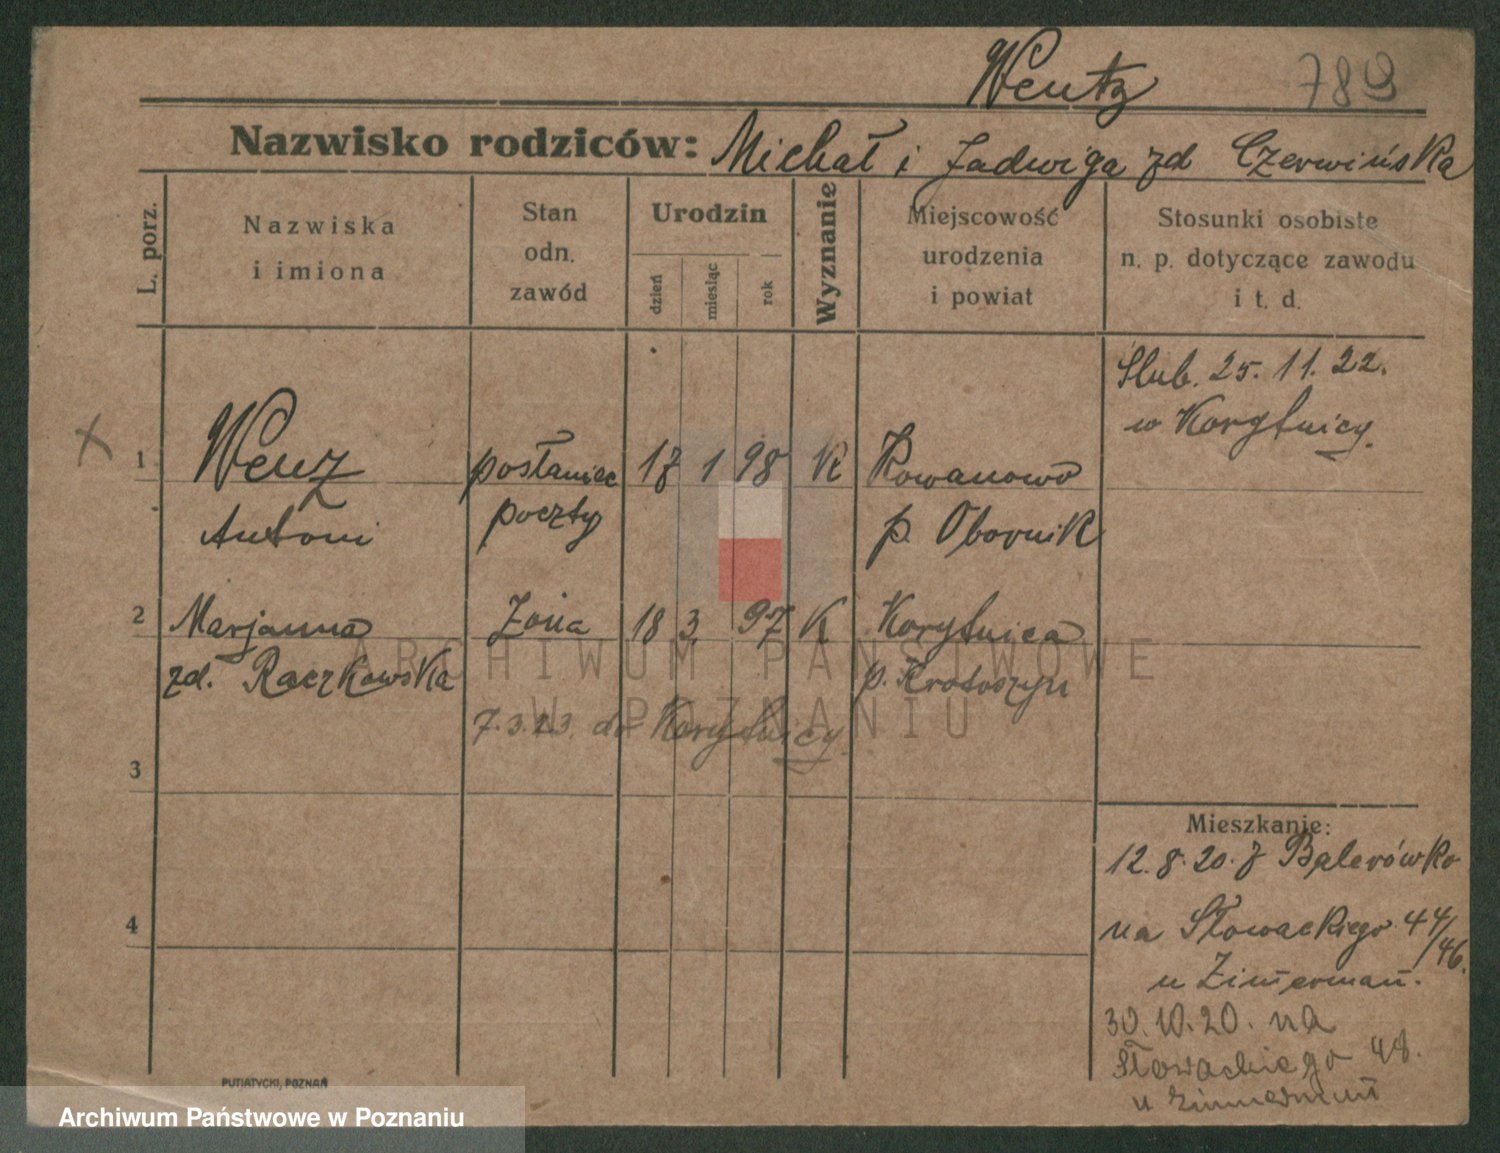 Wentz 789
Nazwisko rodziców: Michał i Jadwiga zd Czerwińska
L. porz.
Nazwiska
i imiona
Stan
odn.
zawód
Urodzin
dzień
miesiąc
rok
Wyznanie
Miejscowość
urodzenia
i powiat
Stosunki osobiste
n. p. dotyczące zawodu
i t. d.
Ślub. 25. 11. 22.
w Korytnicy.
1 Wenz posłaniec 17 1 98 K Rowanowo
Antoni poczty p. Obornik
2 Marjanna Żona 18 3 97 K Korytnica
zd. Raczkowska p. Krotoszyn
7.3.23. do Korytnicy
3
4
Mieszkanie:
12.8.20. z
na Słowackiego 44/46.
u Zimerman.
30.10.20. na
Słowackiego 48.
u
PUTIATYCKI, POZNAŃ
ARCHIWUM PAŃSTWOWE
W POZNANIU
Archiwum Państwowe w Poznaniu